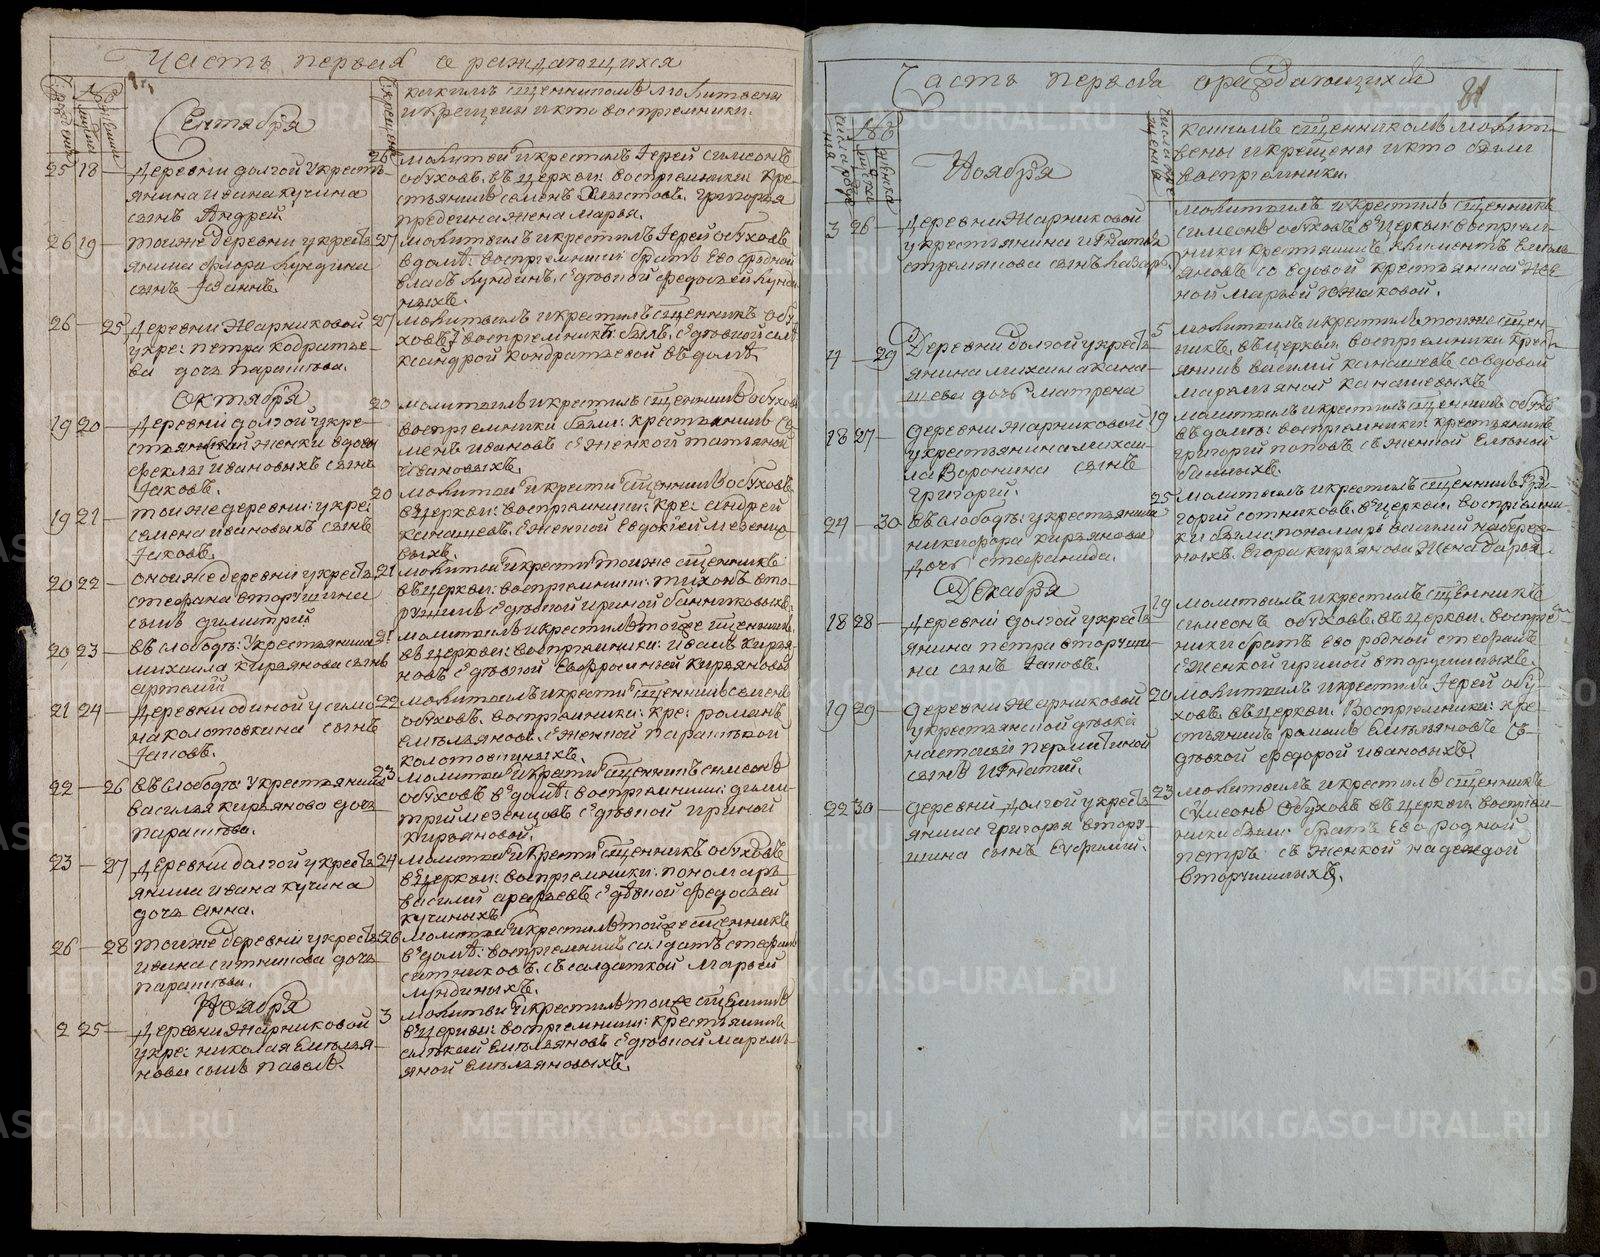 Часть первая о раждающихся
Сентября
какимъ священникомъ молитвены
и крещены и кто восприемники.
25 18 Деревни долгой у кресть-
янина ивана кучина
сынъ Андрей.
26 молитвой и крестилъ Іерей симеонъ
обуховъ. въ церкви: восприемники: кре-
стьянинъ семенъ Хлыстовъ. григорья
предеина жена марья.
26 19 тоиже деревни у кресть-
янина флора лундина
сынъ Іоаннъ.
27 молитвилъ и крестилъ Іерей обуховъ
в домѣ: восприемники: братъ его сродной
владъ лундинъ. съ дѣвкой федосьей лунди-
ныхъ.
26 25 Деревни Жарниковой
у кре: петра кодратье-
ва дочь парасковья.
27 молитвилъ и крестилъ священникъ обу-
ховъ восприемникъ былъ. съ дѣвкой але-
ксандрой кондратьевой въ домѣ.
Октября
19 20 Деревни долгой у кре-
стьянской женки вдовы
феклы ивановыхъ сынъ
Іаковъ.
20 молитвилъ и крестилъ священникъ обуховъ
восприемники были: крестьянинъ се-
менъ ивановъ съ женкой татьяной
ивановыхъ.
19 21 тоиже деревни: у кре:
семена ивановыхъ сынъ
Іаковъ.
20 молитви и крести священникъ обуховъ
в церкви: восприемники: кре: андрей
канашевъ. съ женкой Евдокіей мезенцо-
выхъ.
20 22 оноиже деревни у кресть-
стефана вторушина
сынъ димитрій
21 молитви и крести тоиже священникъ
въ церкви: восприемники: тихонъ вто-
рушинъ съ дѣвкой ириной банниковыхъ.
20 23 въ слободѣ: у крестьянина
михаила кирьянова сынъ
артемій
21 молитвилъ и крестилъ тоиже священникъ
въ церкви: восприемники: иванъ кирья-
новъ съ дѣвкой Евфросиньей кирьяновой
21 24 Деревни одиной у симо-
на колотовкина сынъ
Іаковъ.
22 молитвилъ и крести священникъ семенъ
обуховъ. восприемники: кре: романъ
емельяновъ. съ женкой парасковьей
колотовкиныхъ.
22 26 въ слободѣ у крестьянина
василья кирьяново дочь
парасковья.
23 молитви и крести священникъ симеонъ
обуховъ в домѣ: восприемники: дими-
трий мезенцовъ съ дѣвкой ириной
кирьяновой.
23 27 Деревни долгой у кресть-
янина ивана кучина
дочь анна.
24 молитви и крести священникъ обуховъ
в церкви: восприемники: пономарь
василий арефьевъ съ дѣвкой федосьей
кучиныхъ
26 28 тоиже деревни у кресть:
ивана ситникова дочь
парасковья.
26 молитви и крестилъ тоиже священникъ
в домѣ: восприемникъ салдатъ стефанъ
ситниковъ. съ салдаткой марьей
лундиныхъ.
Ноября
2 25 Деревни Жарниковой
у кре: николая Емелья-
нова сынъ павелъ.
3 молитви и крестилъ тоиже священникъ
в церкви: восприемники: крестьянинъ
алѣксѣй Емельяновъ съ дѣвкой марем-
яной Емельяновыхъ.
Часть первая о раждающихся
81
какимъ священникомъ молит-
вены и крещены и кто были
восприемники.
Ноября
3 26 Деревни Жарниковой
у крестьянина игнатья
стремянова сынъ лазарь.
молитвилъ и крестилъ священникъ
симеонъ обуховъ в церкви: восприем-
ники крестьянинъ климентъ Емель-
яновъ со вдовой крестьянской жен-
ной марьей южаковой.
4 29 Деревни долгой у кресть-
янина михаила кана-
шева дочь матрена
5 молитвилъ и крестилъ тоиже свящ-
никъ. въ церкви. восприемники кресть-
янинъ василий канашевъ со вдовой
маремьяной канашевыхъ
18 27 Деревни Жарниковой
у крестьянина михаи-
ла Воронина сынъ
григорий.
19 молитвилъ и крестилъ священникъ обухо
въ домѣ: восприемники: крестьянинъ
григорий поповъ съ женкой Еленой
баиныхъ.
24 30 въ слободѣ: у крестьянина
никифора кирьянова
дочь стефанида.
25 молитвилъ и крестилъ священникъ Гри-
горий сотниковъ. в церкви. восприемни-
ки были: пономарь василий набереж-
ныхъ. Егора кирьянова жена дарья
Декабря
18 28 Деревни долгой у кресть-
янина петра вторуши-
на сынъ Іаковъ.
19 молитвилъ и крестилъ священникъ
симеонъ обуховъ. въ церкви. восприем-
ники братъ его родной стефанъ
съ женкой ириной вторушиныхъ.
19 29 Деревни Жарниковой
у крестьянской дѣвки
настасьи пермикиной
сынъ игнатий.
20 молитвилъ и крестилъ Іерей обу-
ховъ въ церкви. Восприемники: кре-
стьянинъ романъ Емельяновъ съ
дѣвкой федорой ивановыхъ.
22 30 Деревни долгой у кресть-
янина григорья втору-
шина сынъ Евфимий.
23 молитвилъ и крестилъ священникъ
Сумеонъ Обуховъ въ церкви. восприем-
ники были: братъ его родной
петръ съ женкой надеждой
вторушиныхъ.